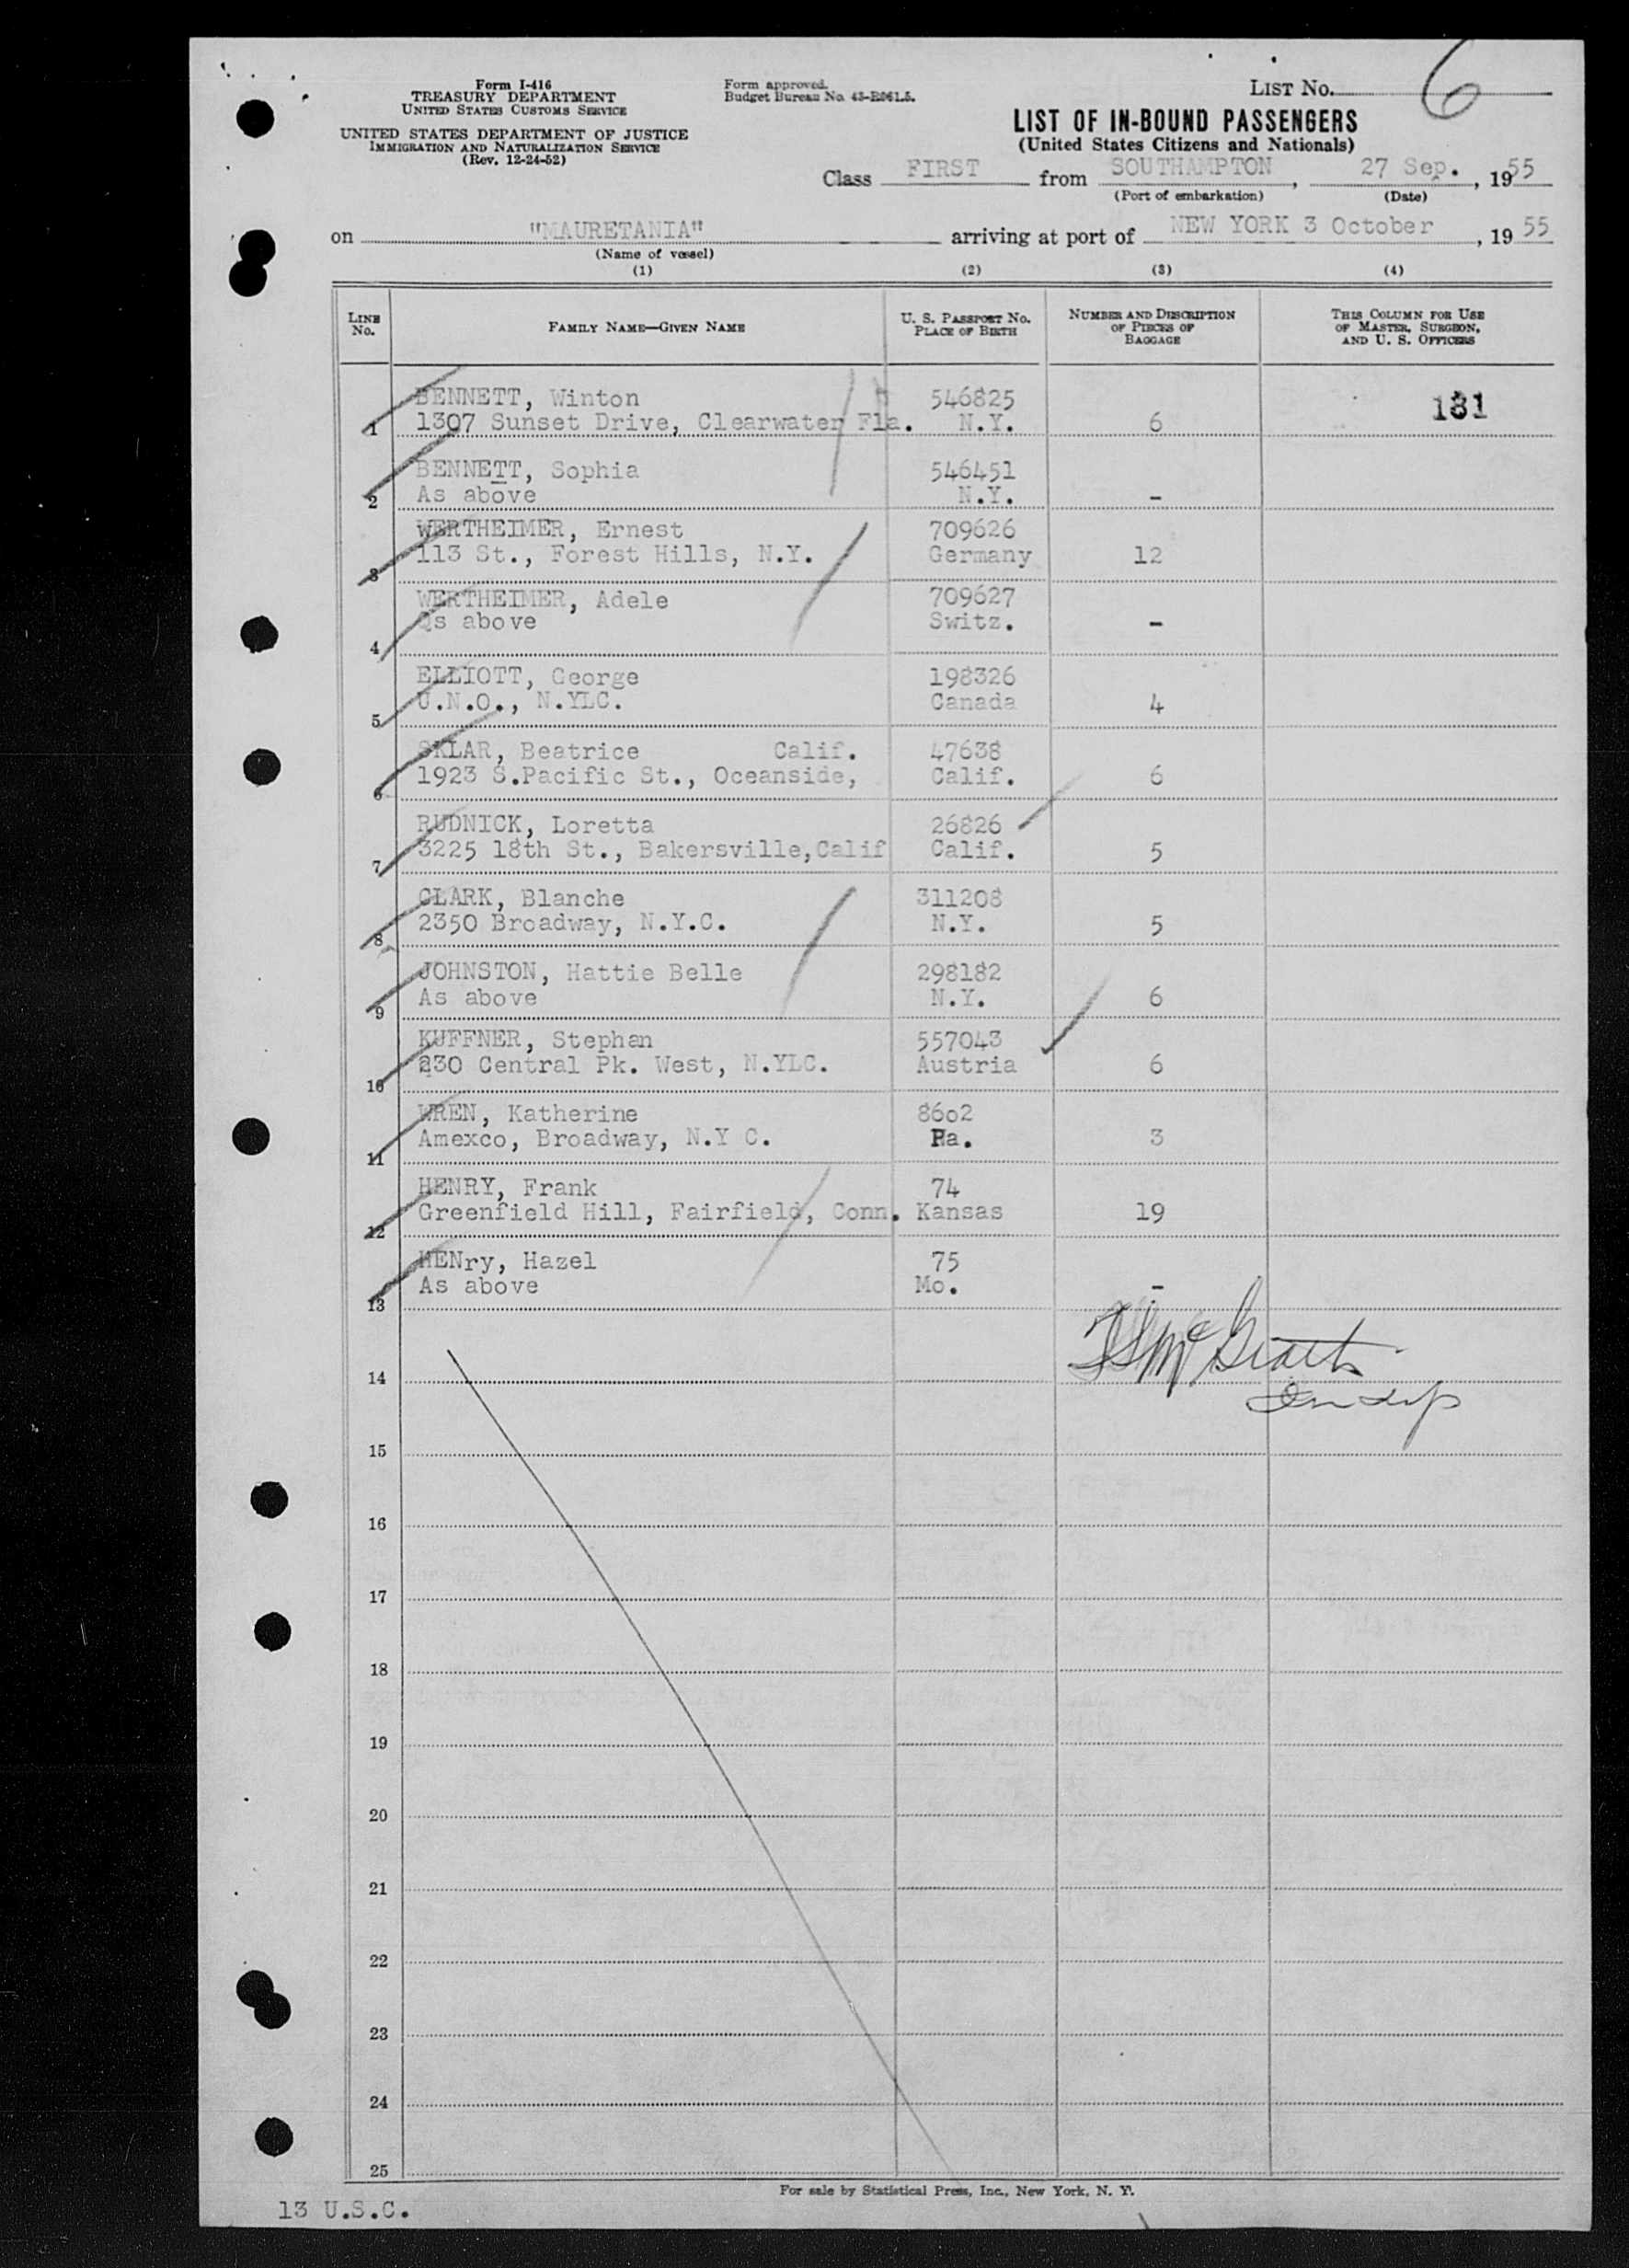 Form I-416
TREASURY DEPARTMENT
UNITED STATES CUSTOMS SERVICE
UNITED STATES DEPARTMENT OF JUSTICE
IMMIGRATION AND NATURALIZATION SERVICE
(Rev. 12-24-52)
Form approved.
Budget Bureau No. 43-R061.5.
LIST No. 6
LIST OF IN-BOUND PASSENGERS
(United States Citizens and Nationals)
Class FIRST from SOUTHAMPTON, 27 Sep., 1955
(Port of embarkation) (Date)
on "MAURETANIA" arriving at port of NEW YORK 3 October, 1955
(Name of vessel)
(1) (2) (3) (4)
LINE No. FAMILY NAME—GIVEN NAME U. S. PASSPORT No. PLACE OF BIRTH NUMBER AND DESCRIPTION OF PIECES OF BAGGAGE THIS COLUMN FOR USE OF MASTER, SURGEON, AND U. S. OFFICERS
BENNETT, Winton 546825 181
1 1307 Sunset Drive, Clearwater Fla. N.Y. 6
BENNETT, Sophia 546451
2 As above N.Y. -
WERTHEIMER, Ernest 709626
3 113 St., Forest Hills, N.Y. Germany 12
WERTHEIMER, Adele 709627
4 Qs above Switz. -
ELLIOTT, George 198326
5 U.N.O., N.YLC. Canada 4
SKLAR, Beatrice Calif. 47638
6 1923 S.Pacific St., Oceanside, Calif. 6
RUDNICK, Loretta 26826
7 3225 18th St., Bakersville,Calif Calif. 5
CLARK, Blanche 311208
8 2350 Broadway, N.Y.C. N.Y. 5
JOHNSTON, Hattie Belle 298182
9 As above N.Y. 6
KUFFNER, Stephan 557043
10 230 Central Pk. West, N.YLC. Austria 6
WREN, Katherine 8602
11 Amexco, Broadway, N.Y C. Pa. 3
HENRY, Frank 74
12 Greenfield Hill, Fairfield, Conn. Kansas 19
HENry, Hazel 75
13 As above Mo. -
McGrath
14
15
16
17
18
19
20
21
22
23
24
25
For sale by Statistical Press, Inc., New York, N. Y.
13 U.S.C.